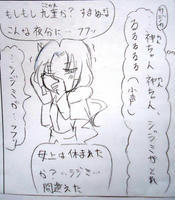 …神ちゃん、シジミがとれ
…神ちゃん、
(小声)
るるるるる
もしもし九重か?すまぬな
こんな夜分に…フフッ
…シジミが…フフッ
母上は休まれた
か?…シジミ…
間違えた